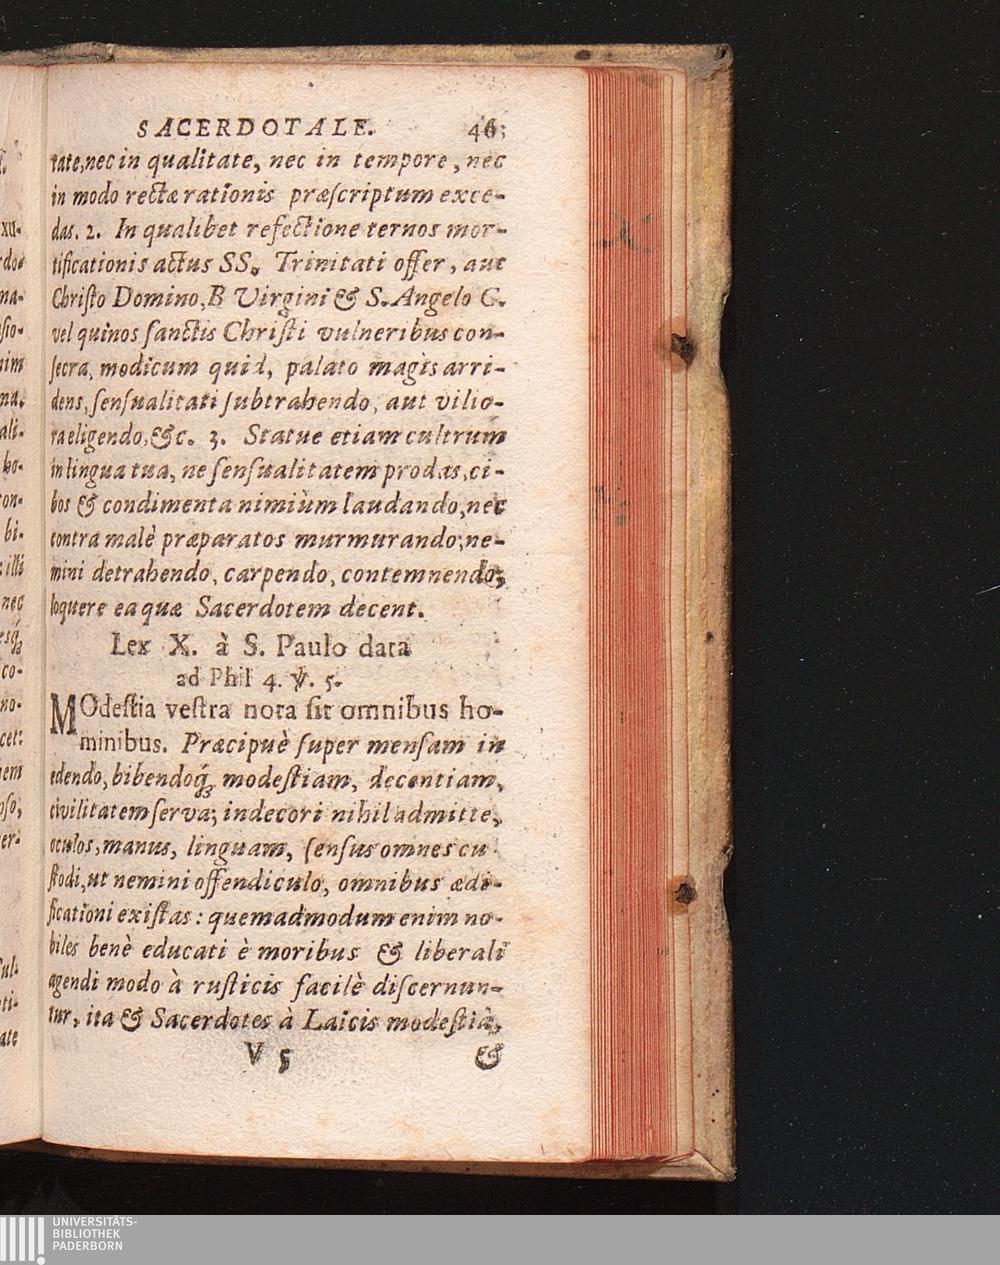 SACERDOTALE. 46;
tate, nec in qualitate, nec in tempore, nec
in modo rectæ rationis præſcriptum exce-
das. 2. In qualibet refectione ternos mor-
tificationis actus SS. Trinitati offer, aut
Chriſto Domino, B Virgini & S. Angelo C.
vel quinos ſanctis Chriſti vulneribus con-
ſecra, modicum quid, palato magìs arri-
dens, ſenſualitati ſubtrahendo, aut vilio-
ra eligendo, &c. 3. Statue etiam cultrum
in lingua tua, ne ſenſualitatem prodas, ci-
bos & condimenta nimiùm laudando, nec
contra malè præparatos murmurando; ne-
mini detrahendo, carpendo, contemnendo;
loquere ea quæ Sacerdotem decent.
Lex X. à S. Paulo data
ad Phil 4. ℣. 5.
MOdeſtia veſtra nota ſit omnibus ho-
minibus. Præcipuè ſuper menſam in
edendo, bibendoq́; modeſtiam, decentiam,
civilitatem ſerva; indecori nihil admitte,
oculos, manus, linguam, ſenſus omnes cu
ſtodi, ut nemini offendiculo, omnibus ædi-
ficationi exiſtas: quemadmodum enim no-
biles benè educati è moribus & liberali
agendi modo à ruſticis facilè diſcernun-
tur, ita & Sacerdotes à Laicis modeſtiâ,
V 5 &
xu-
na-
ſio-
nim
ali-
ho-
bi-
illi
nec
co-
no-
er-
ate
UNIVERSITÄTS-
BIBLIOTHEK
PADERBORN